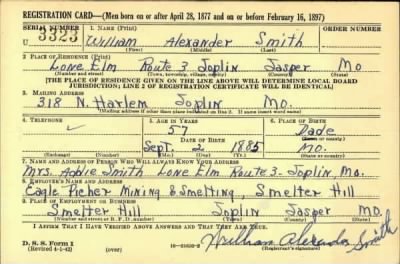 REGISTRATION CARD—(Men born on or after April 28, 1877 and on or before February 16, 1897)
SERIAL NUMBER 1. NAME (Print) ORDER NUMBER
U 3323 William Alexander Smith
(First) (Middle) (Last)
2. PLACE OF RESIDENCE (Print)
Lone Elm Route 3 Joplin Jasper Mo
(Number and street) (Town, township, village, or city) (County) (State)
[THE PLACE OF RESIDENCE GIVEN ON THE LINE ABOVE WILL DETERMINE LOCAL BOARD
JURISDICTION; LINE 2 OF REGISTRATION CERTIFICATE WILL BE IDENTICAL]
3. MAILING ADDRESS
318 N. Harlem Joplin Mo.
[Mailing address if other than place indicated on line 2. If same insert word same]
4. TELEPHONE 5. AGE IN YEARS 6. PLACE OF BIRTH
57 Dade
DATE OF BIRTH (Town or county)
Sept. 2 1885 Mo.
(Exchange) (Number) (Mo.) (Day) (Yr.) (State or country)
7. NAME AND ADDRESS OF PERSON WHO WILL ALWAYS KNOW YOUR ADDRESS
Mrs. Addie Smith Lone Elm Route 3. Joplin, Mo.
8. EMPLOYER'S NAME AND ADDRESS
Eagle Picher Mining & Smelting, Smelter Hill
9. PLACE OF EMPLOYMENT OR BUSINESS
Smelter Hill Joplin Jasper Mo.
(Number and street or R. F. D. number) (Town) (County) (State)
I AFFIRM THAT I HAVE VERIFIED ABOVE ANSWERS AND THAT THEY ARE TRUE.
D. S. S. Form 1
(Revised 4-1-42) (over) William Alexander Smith
(Registrant's signature)